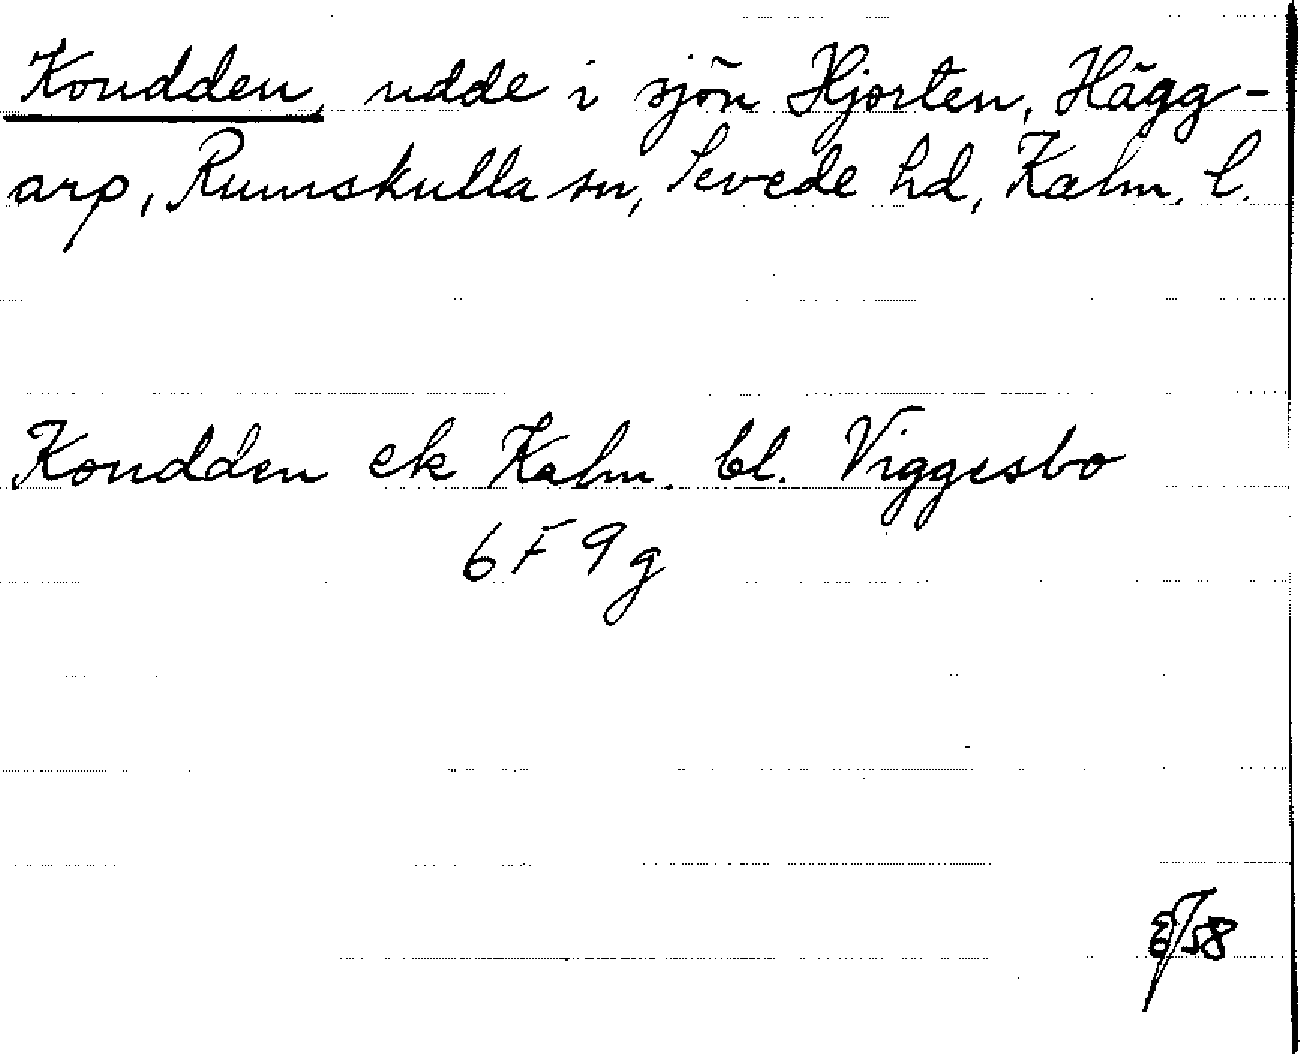 Koudden, udde i sjön Hjorten, Hägg-
arp, Rumskulla sn, Sevede hd, Kalm. l.
Koudden ek Kalm. bl. Viggesbo
6 F 9 g
58